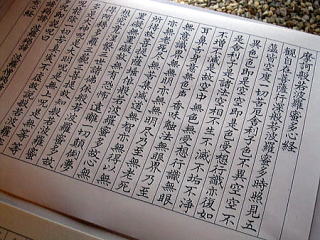 摩訶般若波羅蜜多心経
観自在菩薩行深般若波羅蜜多時照見五
蘊皆空度一切苦厄舎利子色不異空空不
異色色即是空空即是色受想行識亦復如
是舎利子是諸法空相不生不滅不垢不浄
不増不減是故空中無色無受想行識無眼
耳鼻舌身意無色声香味触法無眼界乃至
無意識界無無明亦無無明尽乃至無老死
亦無老死尽無苦集滅道無智亦無得以無
所得故菩提薩埵依般若波羅蜜多故心
無罣礙無罣礙故無有恐怖遠離一切顛倒夢
想究竟涅槃三世諸仏依般若波羅蜜多故
得阿耨多羅三藐三菩提故知般若波羅蜜
多是大神呪是大明呪是無上呪是無等等